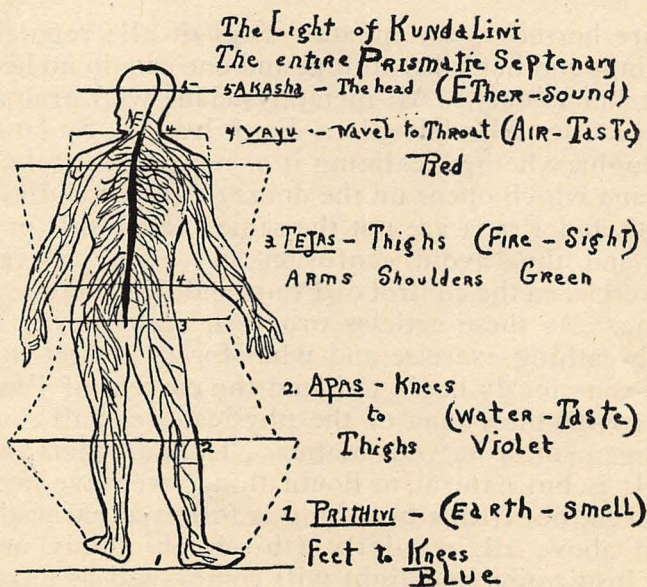 The Light of Kundalini
The entire Prismatic Septenary
5 Akasha - The head (Ether-Sound)
4 Vayu - Navel to Throat (Air-Taste)
Red
3. Tejas - Thighs (Fire - Sight)
Arms Shoulders Green
2. Apas - Knees
to (Water-Taste)
Thighs Violet
1. Prithivi - (Earth - smell)
Feet to Knees
Blue
5
4
4
3
2
1